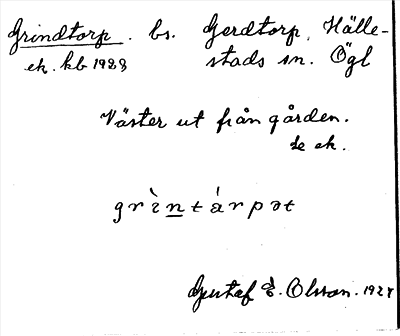 Grindtorp. bs. Gerdtorp, Hälle-
ek. kb 1928 stads sn. Ögl
Väster ut från gården.
se ek.
grìntárpət
Gustaf E. Olsson. 1927